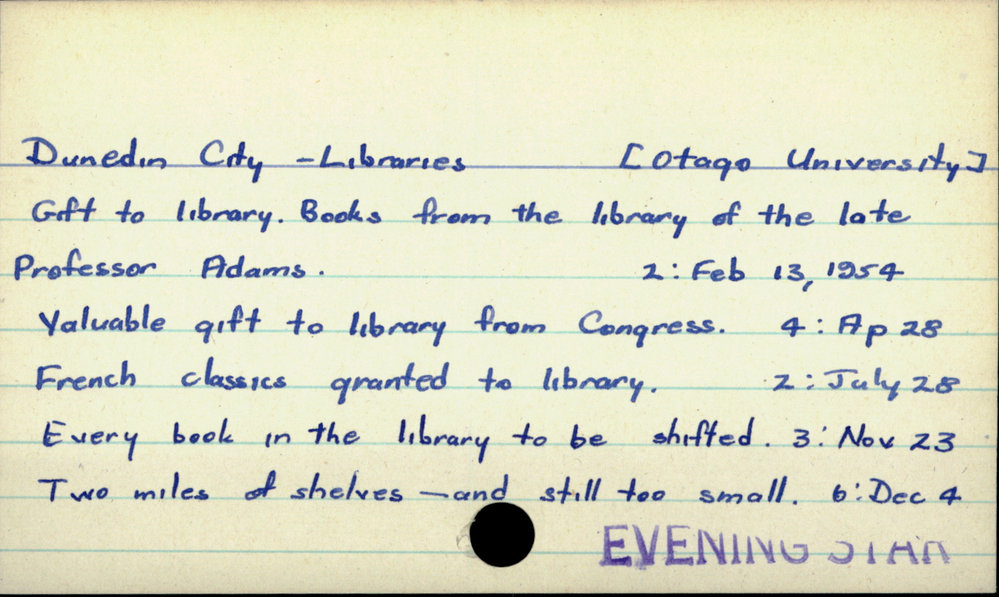 Dunedin City - Libraries [Otago University]
Gift to library. Books from the library of the late
Professor Adams. 2: Feb 13, 1954
Valuable gift to library from Congress. 4: Ap 28
French classics granted to library. 2: July 28
Every book in the library to be shifted. 3: Nov 23
Two miles of shelves — and still too small. 6: Dec 4
EVENING STAR